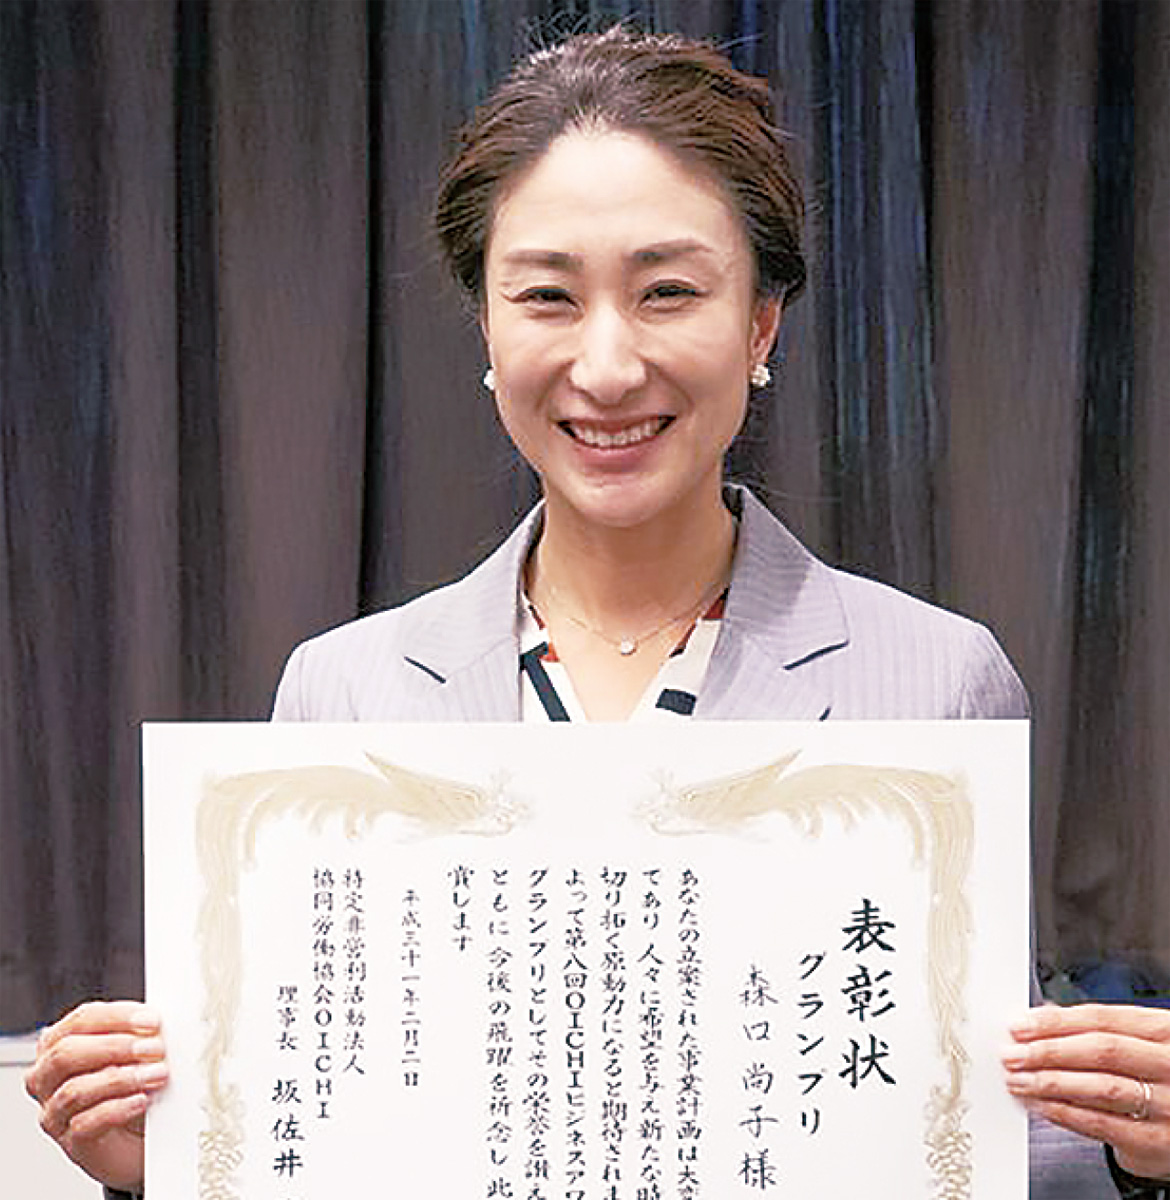 表彰状
グランプリ
森口尚子様
あなたの立案された事業計画は大変
てあり 人々に希望を与え新たな時
切り拓く原動力になると期待されま
よって第八回OICHIビジネスアワ
グランプリとしてその栄誉を讃え
ともに今後の飛躍を祈念し此
賞します
平成三十一年二月二日
特定非営利活動法人
協同労働協会OICHI
理事長 坂佐井